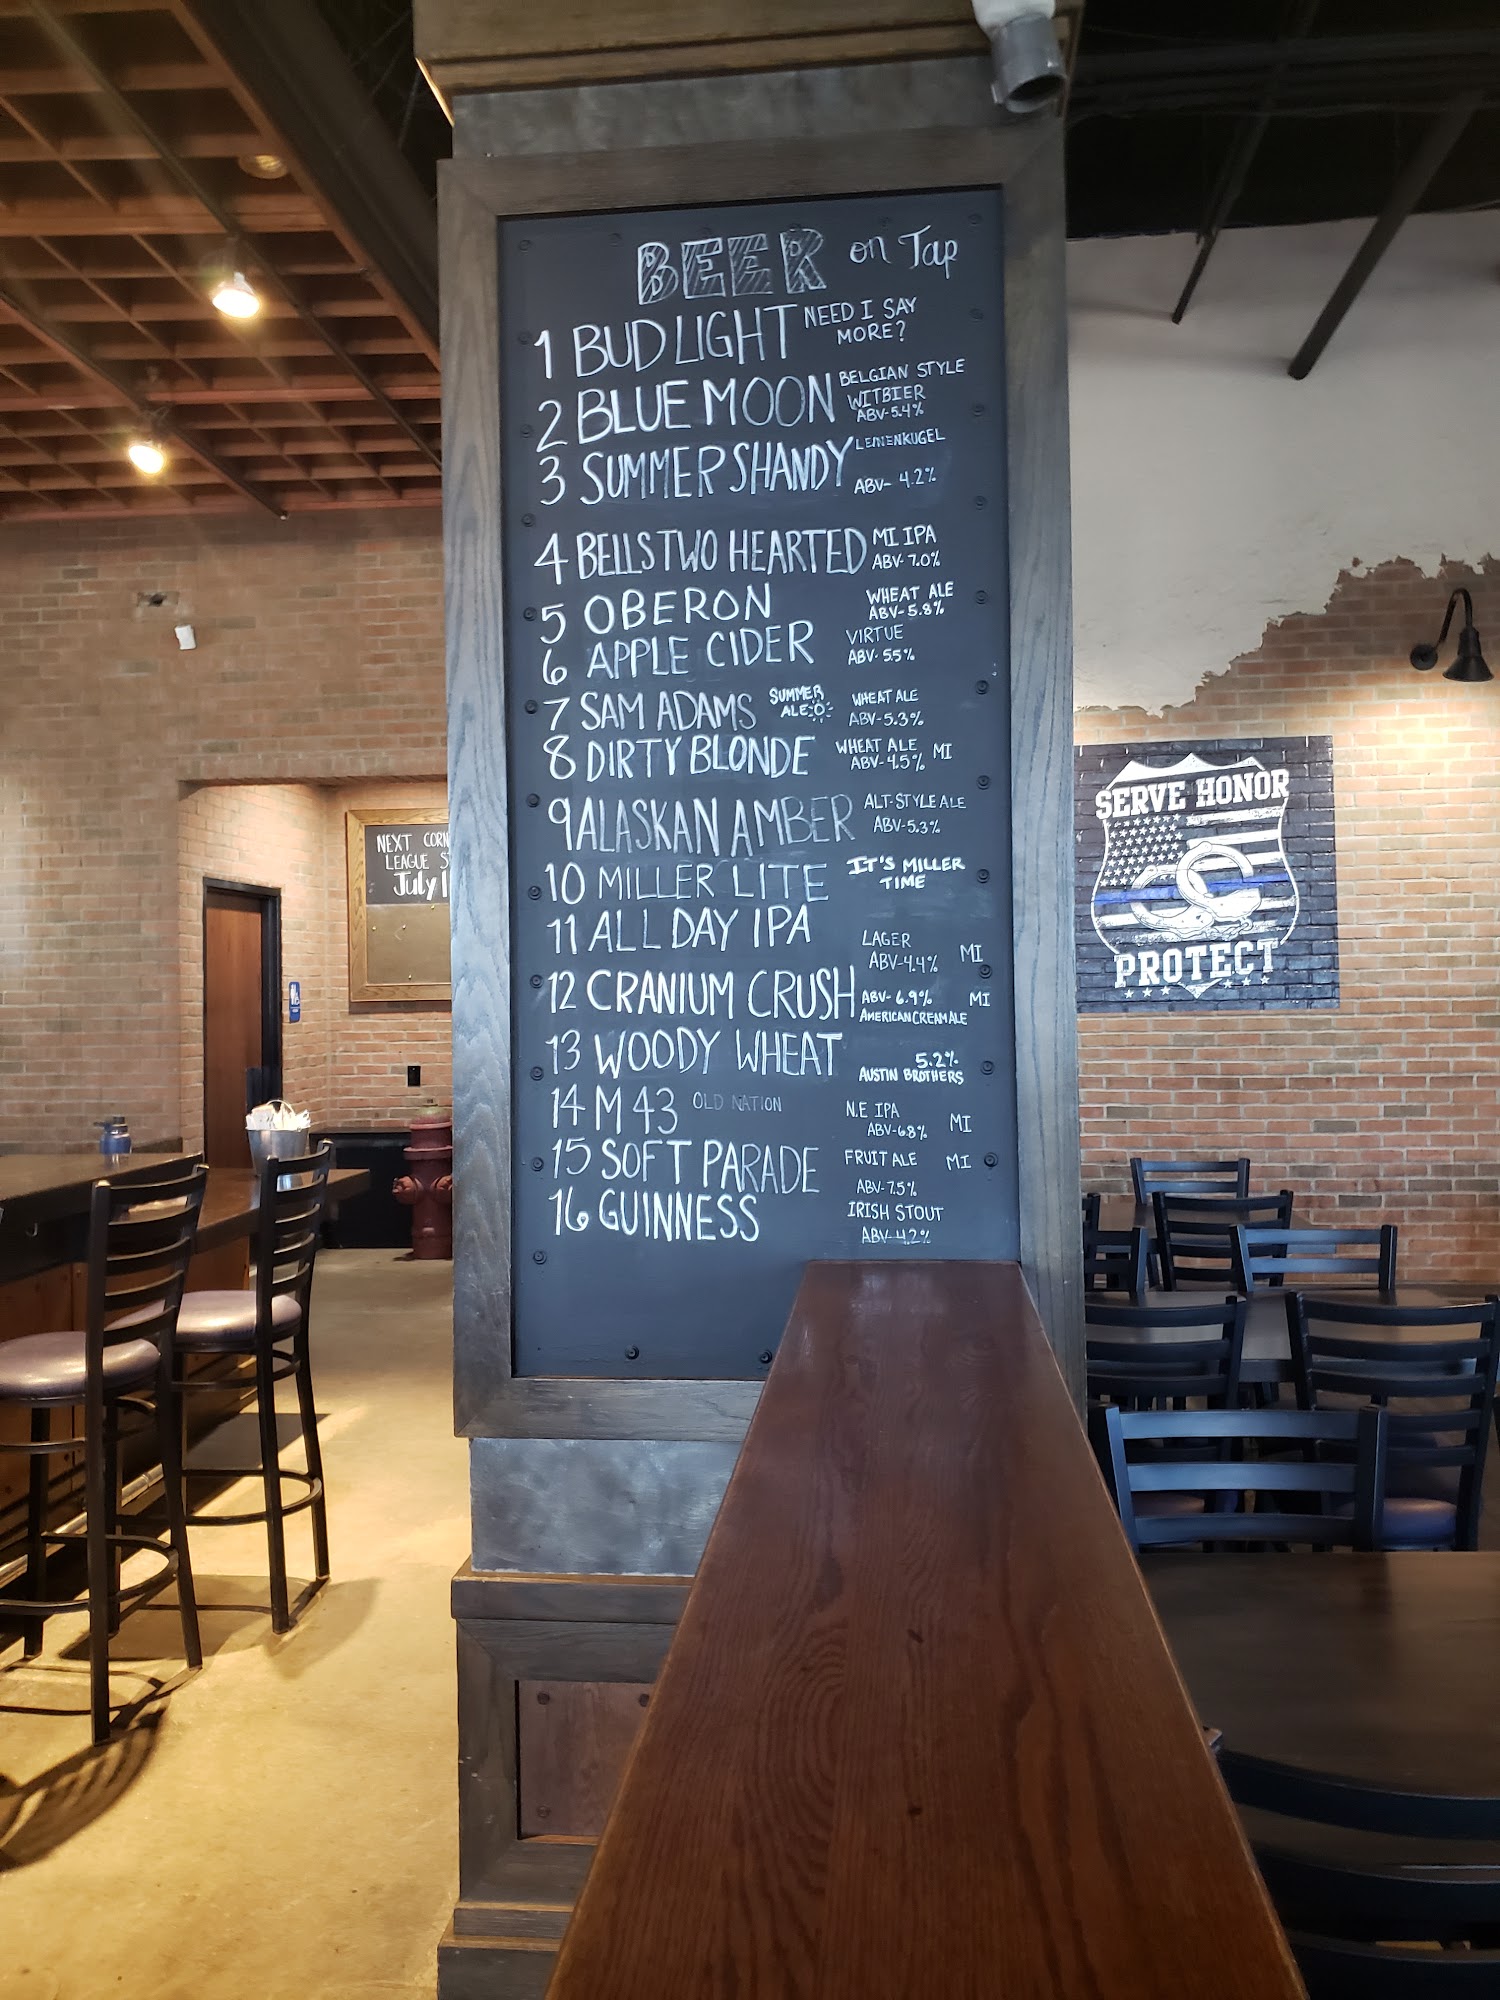 BEER on Tap
1 BUD LIGHT NEED I SAY
MORE?
2 BLUE MOON BELGIAN STYLE
WITBIER
ABV-5.4%
3 SUMMER SHANDY LEINENKUGEL
ABV- 4.2%
4 BELLS TWO HEARTED MI IPA
ABV-7.0%
5 OBERON WHEAT ALE
ABV-5.8%
6 APPLE CIDER VIRTUE
ABV-5.5%
7 SAM ADAMS SUMMER
ALE
WHEAT ALE
ABV-5.3%
8 DIRTY BLONDE WHEAT ALE
ABV-4.5% MI
9 ALASKAN AMBER ALT-STYLE ALE
ABV-5.3%
10 MILLER LITE IT'S MILLER
TIME
11 ALL DAY IPA LAGER
ABV-4.4% MI
12 CRANIUM CRUSH ABV-6.9% MI
AMERICAN CREAM ALE
13 WOODY WHEAT 5.2%
AUSTIN BROTHERS
14 M 43 OLD NATION N.E IPA
ABV-6.8% MI
15 SOFT PARADE FRUIT ALE MI
ABV-7.5%
16 GUINNESS IRISH STOUT
ABV-4.2%
NEXT CORN
LEAGUE S
July 1
SERVE HONOR
PROTECT